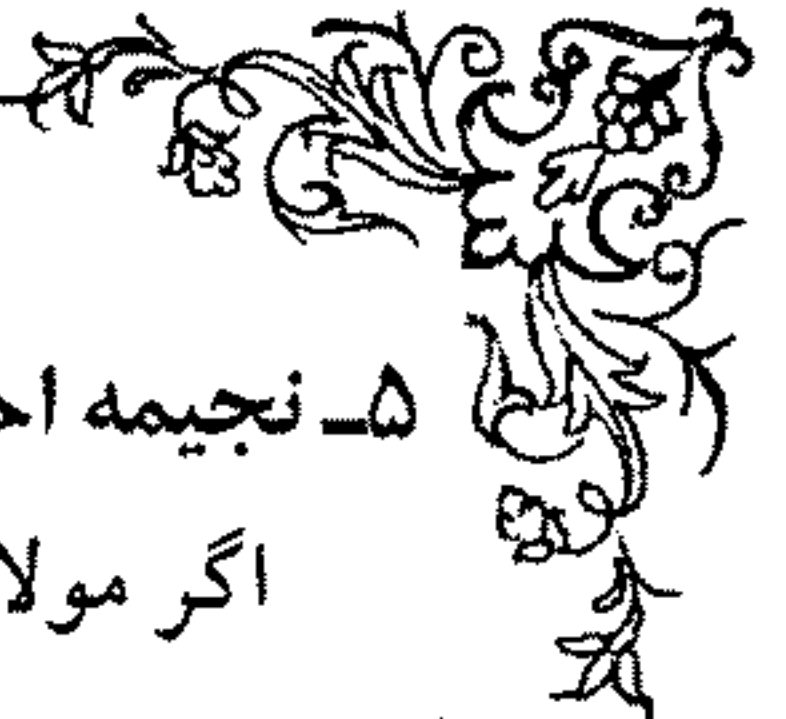 ۵ـ نجیمه
اگر مولا